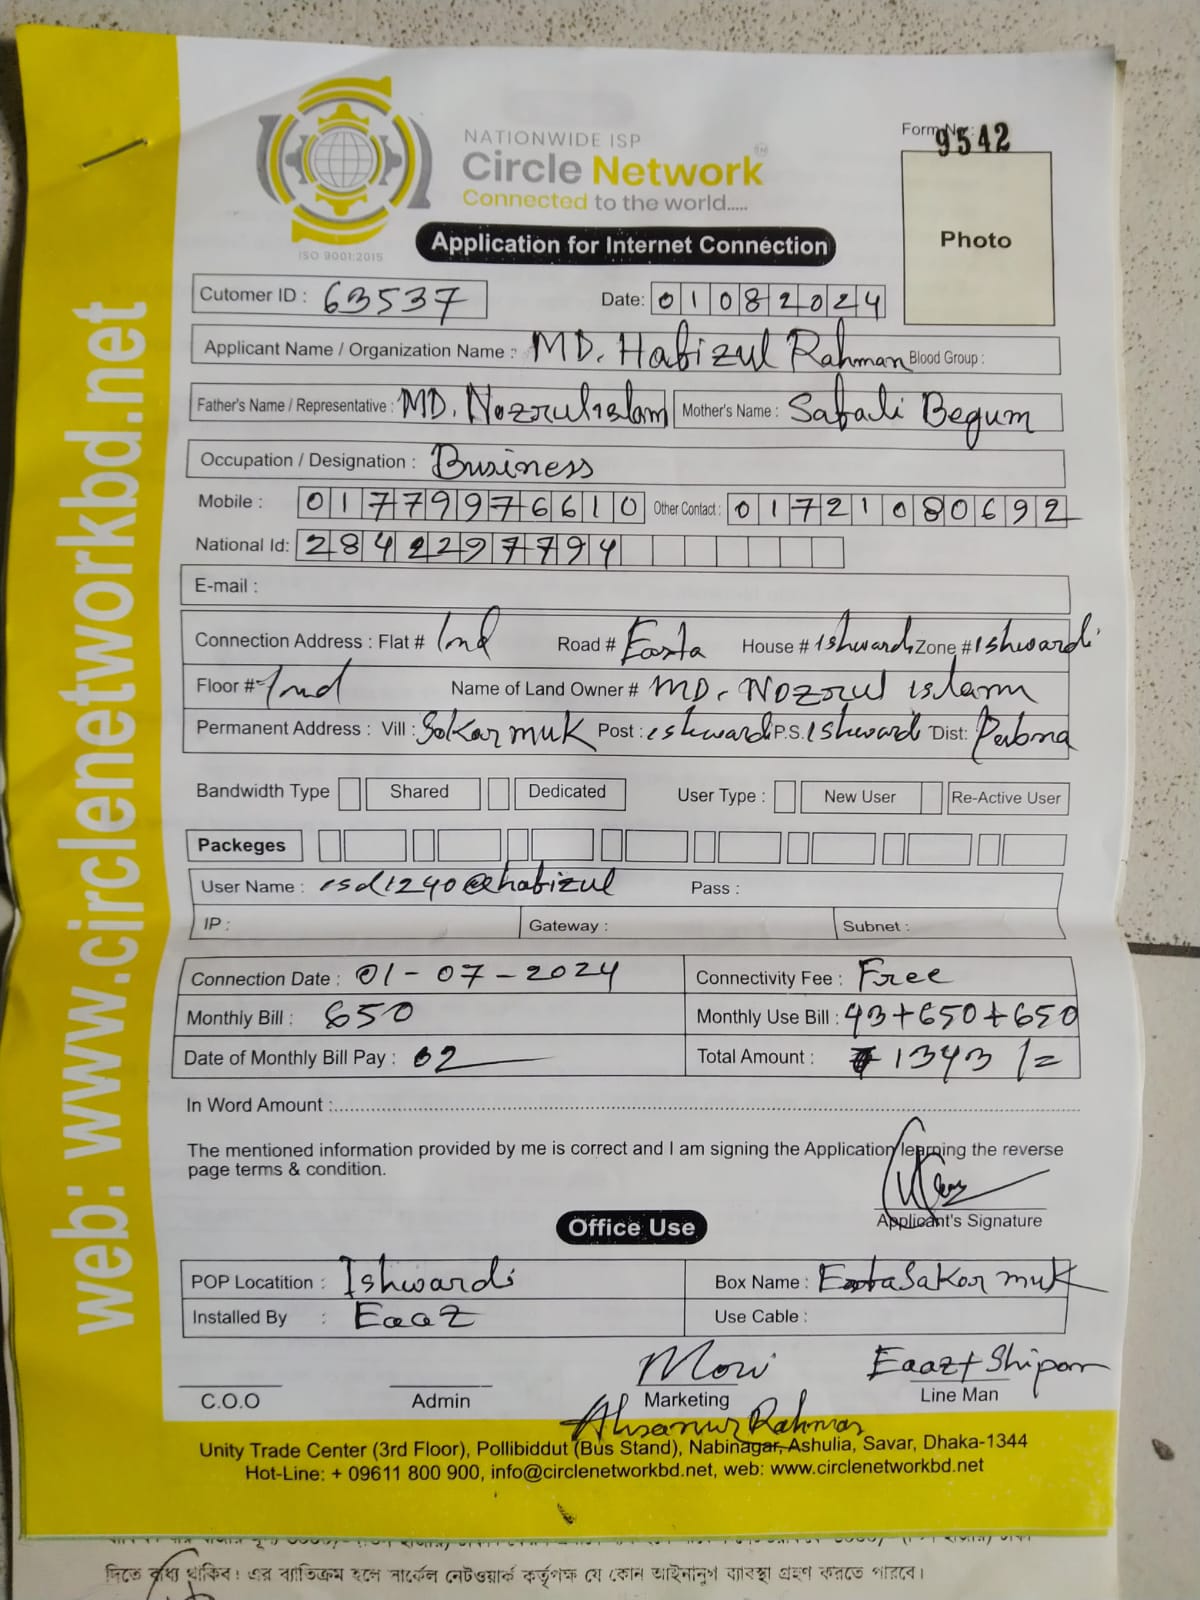 web: www.circlenetworkbd.net
NATIONWIDE ISP
Circle Network
Connected to the world.....
ISO 9001:2015
Form No: 9542
Photo
Application for Internet Connection
Cutomer ID : 63537 Date: 01082024
Applicant Name / Organization Name : MD. Habizul Rahman Blood Group :
Father's Name / Representative : MD. Nozrul islam Mother's Name : Sabali Begum
Occupation / Designation : Business
Mobile : 01779976610 Other Contact : 01721080692
National Id: 2842297794
E-mail :
Connection Address : Flat # Road # House # ishwardi Zone # ishwardi
Floor # Name of Land Owner # MD. Nozrul islam
Permanent Address : Vill : Sakar muk Post : ishwardi P.S. ishwardi Dist: Pabna
Bandwidth Type Shared Dedicated User Type : New User Re-Active User
Packeges
User Name : isd1240@habizul Pass :
IP : Gateway : Subnet :
Connection Date : 01-07-2024 Connectivity Fee : Free
Monthly Bill : 650 Monthly Use Bill : 43+650+650
Date of Monthly Bill Pay : 02 Total Amount : 1343 /=
In Word Amount :
The mentioned information provided by me is correct and I am signing the Application learning the reverse
page terms & condition.
Applicant's Signature
Office Use
POP Locatition : Ishwardi Box Name : Sakar muk
Installed By : Eaaz Use Cable :
Eaaz+Shipon
C.O.O Admin Marketing Line Man
Ahsanur Rahman
Unity Trade Center (3rd Floor), Pollibiddut (Bus Stand), Nabinagar, Ashulia, Savar, Dhaka-1344
Hot-Line: + 09611 800 900, info@circlenetworkbd.net, web: www.circlenetworkbd.net
দিতে বাধ্য থাকিব। এর ব্যতিক্রম হলে সার্কেল নেটওয়ার্ক কর্তৃপক্ষ যে কোন আইনানুগ ব্যবস্থা গ্রহণ করতে পারবে।